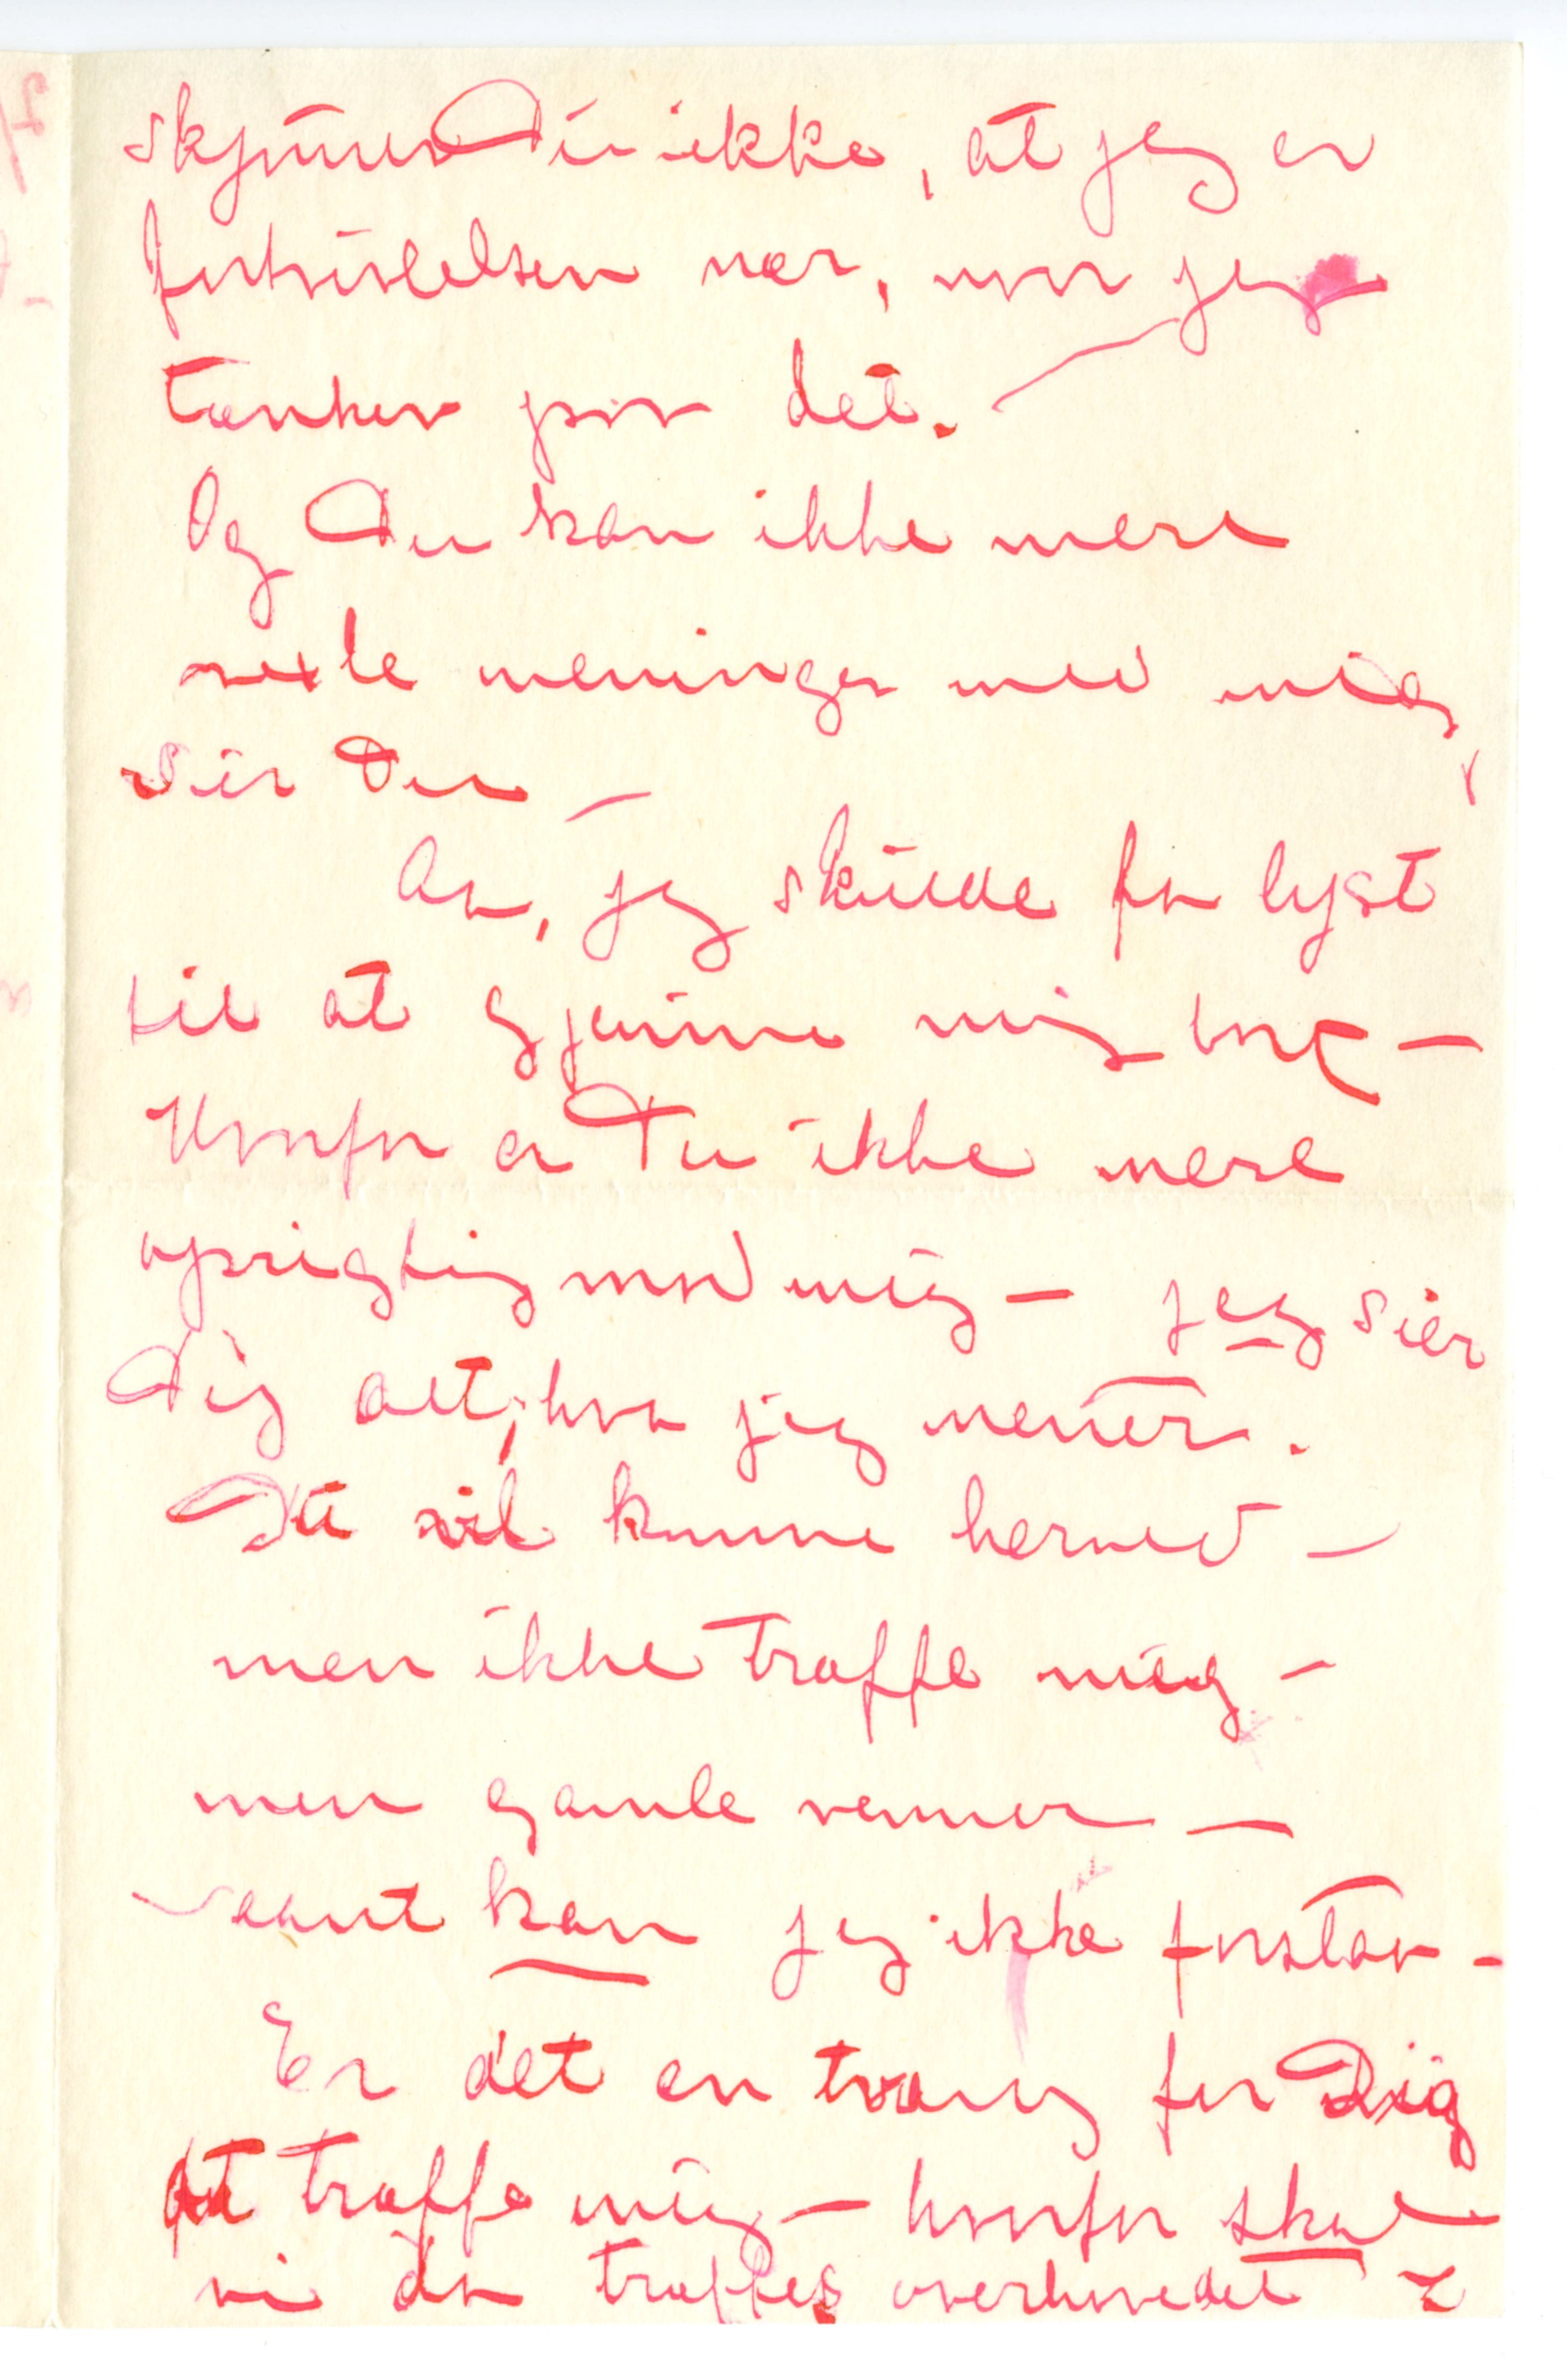 skjønner Du ikke, at jeg er
fortvivlelsen nær, naar jeg
tænker paa det.
Og Du kan ikke mere
vexle meninger med mig,
sier Du –
Aa, jeg skulde faa lyst
til at gjemme mig bort –
Hvorfor er Du ikke mere
oprigtig mod mig – jeg sier
Dig alt, hva jeg mener.
Du vil komme herned –
men ikke træffe mig –
men gamle venner –
saant kan jeg ikke forstaa –
Er det en tvang for Dig
at træffe mig – hvorfor skal
vi da træffes overhovedet ?